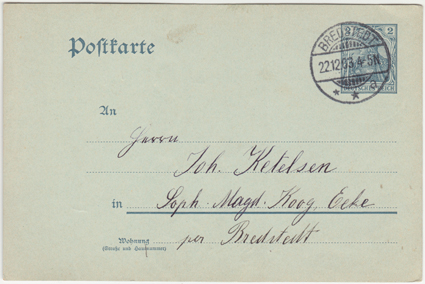 Postkarte
BREDSTEDT
22.12.03.4-5N
a
2
DEUTSCHES REICH
An
Herrn
Joh. Ketelsen
in Soph. Magd. Koog, Ecke
Wohnung
(Straße und Hausnummer)
per Bredstedt